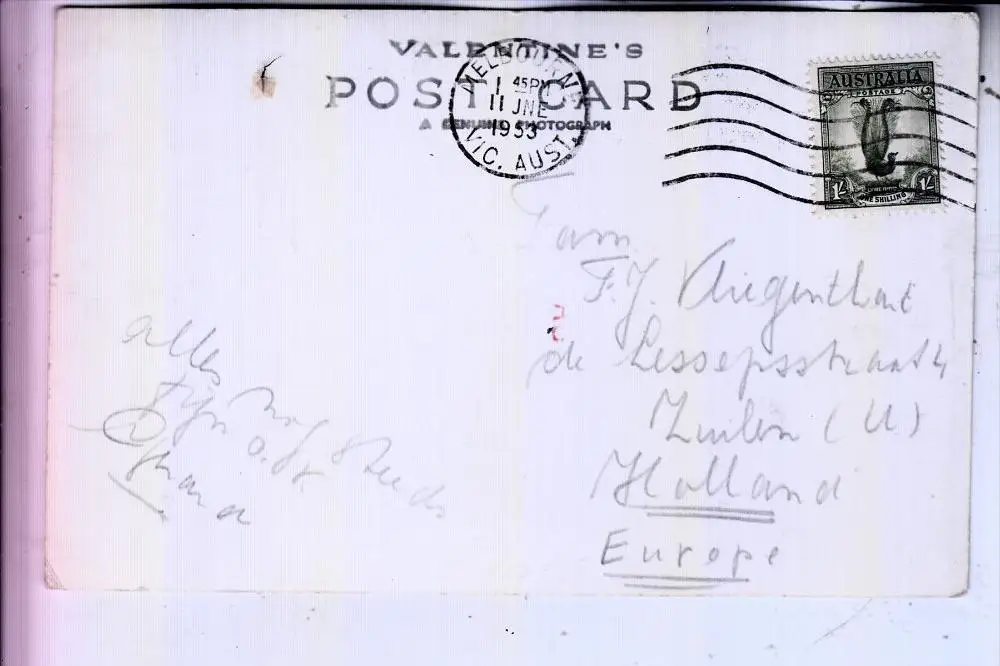 VALENTINE'S
POST CARD
A GENUINE PHOTOGRAPH
MELBOURNE
1 45PM
11 JNE
1953
VIC. AUST.
AUSTRALIA
POSTAGE
1/- 1/-
ONE SHILLING
Fam
F.J. Vliegenthart
de Lessepsstraat
Zuilen (U)
Holland
Europe
Alles
nog steeds
O.K